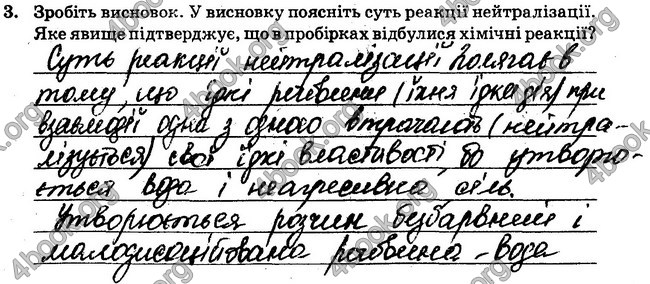 3. Зробіть висновок. У висновку поясніть суть реакції нейтралізації.
Яке явище підтверджує, що в пробірках відбулися хімічні реакції?
Суть реакції нейтралізації полягає в
тому, що їдкі речовини (їхня їдка дія) при
взаємодії одна з одною втрачають (нейтра-
лізується) свої їдкі властивості, бо утворю-
ється вода і неагресивна сіль.
Утворюється розчин безбарвний і
малодисоційована речовина - вода
4book.org